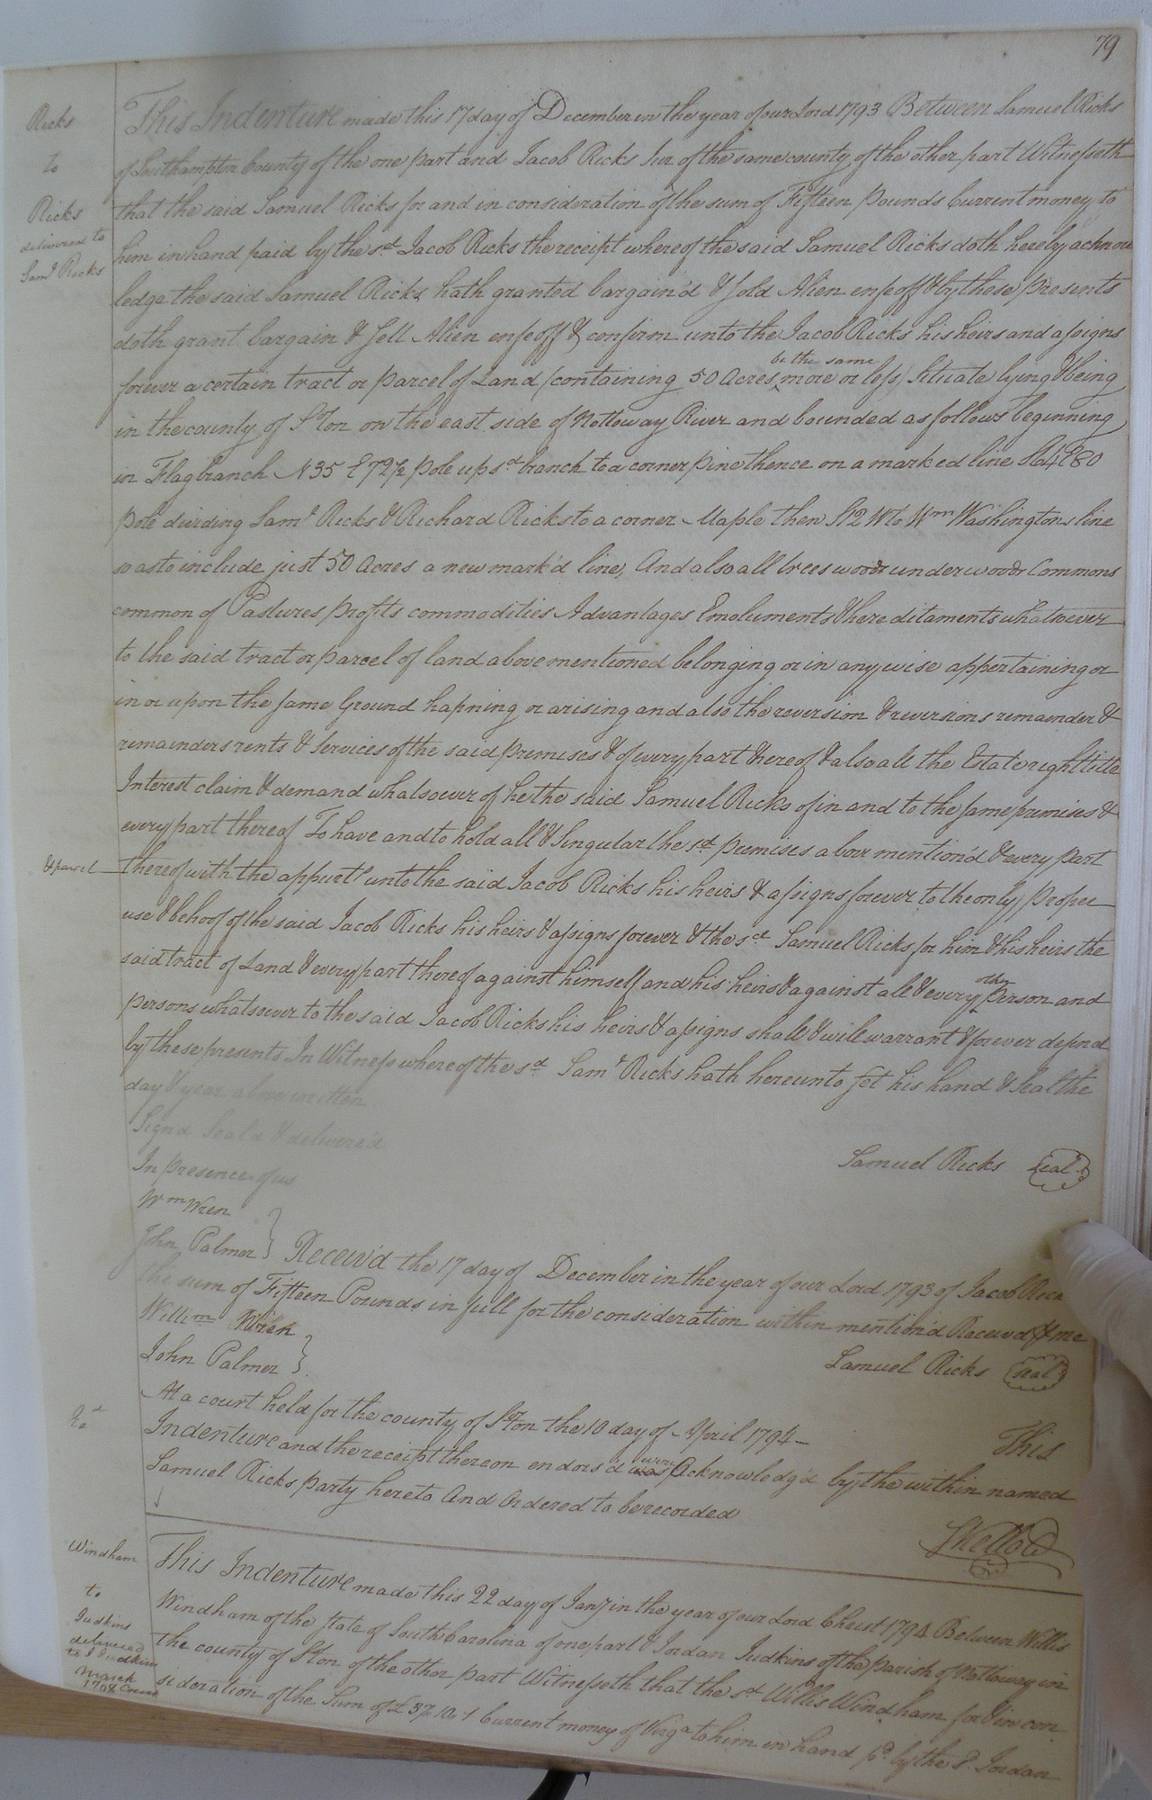 79
Ricks
to
Ricks
delivered to
Saml Ricks
This Indenture made this 17 day of December in the year of our Lord 1793 Between Samuel Ricks
of Southampton County of the one part and Jacob Ricks Junr of the same county of the other part Witnesseth
that the said Samuel Ricks for and in consideration of the sum of Fifteen Pounds Current money to
him in hand paid by the sd Jacob Ricks the receipt whereof the said Samuel Ricks doth hereby acknow
ledge the said Samuel Ricks hath granted bargain'd & Sold Alien enfeoff & by these presents
doth grant bargain & Sell Alien enfeoff & confirm unto the Jacob Ricks his heirs and assigns
forever a certain tract or parcel of Land (containing 50 Acres be the same more or less) Situate lying & being
in the county of S'ton on the east side of Nottoway River and bounded as follows beginning
in Flag branch N 35 E 72½ pole up sd branch to a corner pine thence on a marked line E 80
pole dividing Saml Ricks & Richard Ricks to a corner Maple then 2 W to Wm Washingtons line
so as to include just 50 Acres a new mark'd line, And also all trees woods underwoods Commons
common of Pastures profits commodities Advantages Emoluments & hereditaments whatsoever
to the said tract or parcel of land above mentioned belonging or in any wise appertaining or
in or upon the same Ground hapning or arising and also the reversion & reversions remainder &
remainders rents & Services of the said premises & of every part thereof & also all the Estate right title
Interest claim & demand whatsoever of he the said Samuel Ricks of in and to the same premises &
every part thereof To have and to hold all & Singular the sd premises above mention'd & every part
& parcel
thereof with the appurts unto the said Jacob Ricks his heirs & assigns forever to the only proper
use & behoof of the said Jacob Ricks his heirs & assigns forever & the sd Samuel Ricks for him & his heirs the
said tract of Land & every part thereof against himself and his heirs & against all & every other Person and
persons whatsoever to the said Jacob Ricks his heirs & assigns shall & will warrant & forever defend
by these presents In Witness whereof the sd Saml Ricks hath hereunto set his hand & Seal the
day & year above written
Signd Seal'd & deliver'd
In presence of us
Samuel Ricks Seal
Wm Wren
John Palmer } Receiv'd the 17 day of December in the year of our Lord 1793 of Jacob
the sum of Fifteen Pounds in full for the consideration within mention'd Received me
Willim Wren
John Palmer }
Samuel Ricks Seal
At a court held for the county of S'ton the 10 day of April 1794 - This
Indenture and the receipt thereon endors'd was were Acknowledg'd by the within named
Samuel Ricks party hereto And Ordered to be recorded
Windham
to
Judkins
delivered
to J Judkins
March
1798
This Indenture made this 22 day of Jany in the year of our Lord Christ 1794 Between Willis
Windham of the State of South Carolina of one part & Jordan Judkins of the parish of Nottoway in
the county of S'ton of the other part Witnesseth that the sd Willis Windham for & in con
sideration of the Sum of £ Current money of Virga to him in hand pd by the s. Jordan